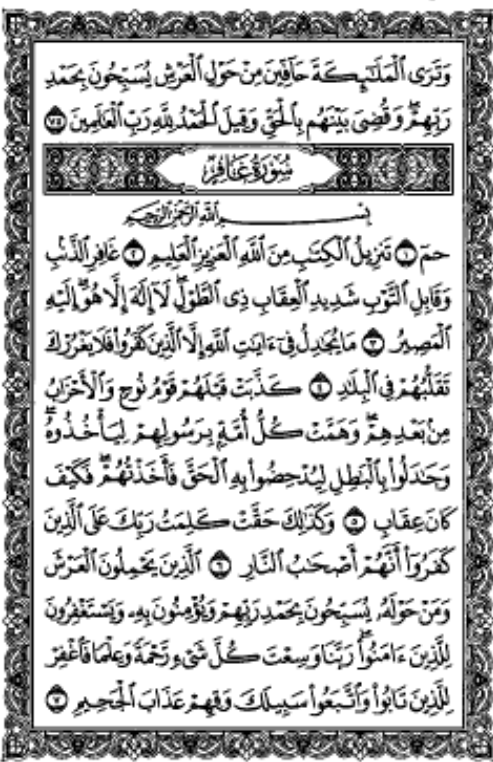 وَتَرَى الْمَلَٰٓئِكَةَ حَآفِّينَ مِنْ حَوْلِ الْعَرْشِ يُسَبِّحُونَ بِحَمْدِ
رَبِّهِمْ وَقُضِيَ بَيْنَهُم بِالْحَقِّ وَقِيلَ الْحَمْدُ لِلَّهِ رَبِّ الْعَٰلَمِينَ ٧٥
سُورَةُ غَافِرٍ
بِسْمِ اللَّهِ الرَّحْمَٰنِ الرَّحِيمِ
حمٓ ١ تَنزِيلُ الْكِتَٰبِ مِنَ اللَّهِ الْعَزِيزِ الْعَلِيمِ ٢ غَافِرِ الذَّنۢبِ
وَقَابِلِ التَّوْبِ شَدِيدِ الْعِقَابِ ذِى الطَّوْلِ لَآ إِلَٰهَ إِلَّا هُوَ إِلَيْهِ
الْمَصِيرُ ٣ مَا يُجَٰدِلُ فِىٓ ءَايَٰتِ اللَّهِ إِلَّا الَّذِينَ كَفَرُوا۟ فَلَا يَغْرُرْكَ
تَقَلُّبُهُمْ فِى الْبِلَٰدِ ٤ كَذَّبَتْ قَبْلَهُمْ قَوْمُ نُوحٍ وَالْأَحْزَابُ
مِنۢ بَعْدِهِمْ وَهَمَّتْ كُلُّ أُمَّةٍۭ بِرَسُولِهِمْ لِيَأْخُذُوهُ
وَجَٰدَلُوا۟ بِالْبَٰطِلِ لِيُدْحِضُوا۟ بِهِ الْحَقَّ فَأَخَذْتُهُمْ فَكَيْفَ
كَانَ عِقَابِ ٥ وَكَذَٰلِكَ حَقَّتْ كَلِمَتُ رَبِّكَ عَلَى الَّذِينَ
كَفَرُوٓا۟ أَنَّهُمْ أَصْحَٰبُ النَّارِ ٦ الَّذِينَ يَحْمِلُونَ الْعَرْشَ
وَمَنْ حَوْلَهُۥ يُسَبِّحُونَ بِحَمْدِ رَبِّهِمْ وَيُؤْمِنُونَ بِهِۦ وَيَسْتَغْفِرُونَ
لِلَّذِينَ ءَامَنُوا۟ رَبَّنَا وَسِعْتَ كُلَّ شَىْءٍ رَّحْمَةً وَعِلْمًا فَاغْفِرْ
لِلَّذِينَ تَابُوا۟ وَاتَّبَعُوا۟ سَبِيلَكَ وَقِهِمْ عَذَابَ الْجَحِيمِ ٧